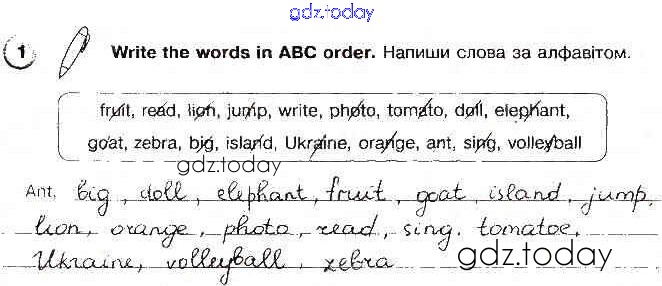 gdz.today
1 Write the words in ABC order. Напиши слова за алфавітом.
fruit, read, lion, jump, write, photo, tomato, doll, elephant,
goat, zebra, big, island, Ukraine, orange, ant, sing, volleyball
gdz.today
Ant, big, doll, elephant, fruit, goat, island, jump,
lion, orange, photo, read, sing, tomatoe,
Ukraine, volleyball, zebra
gdz.today